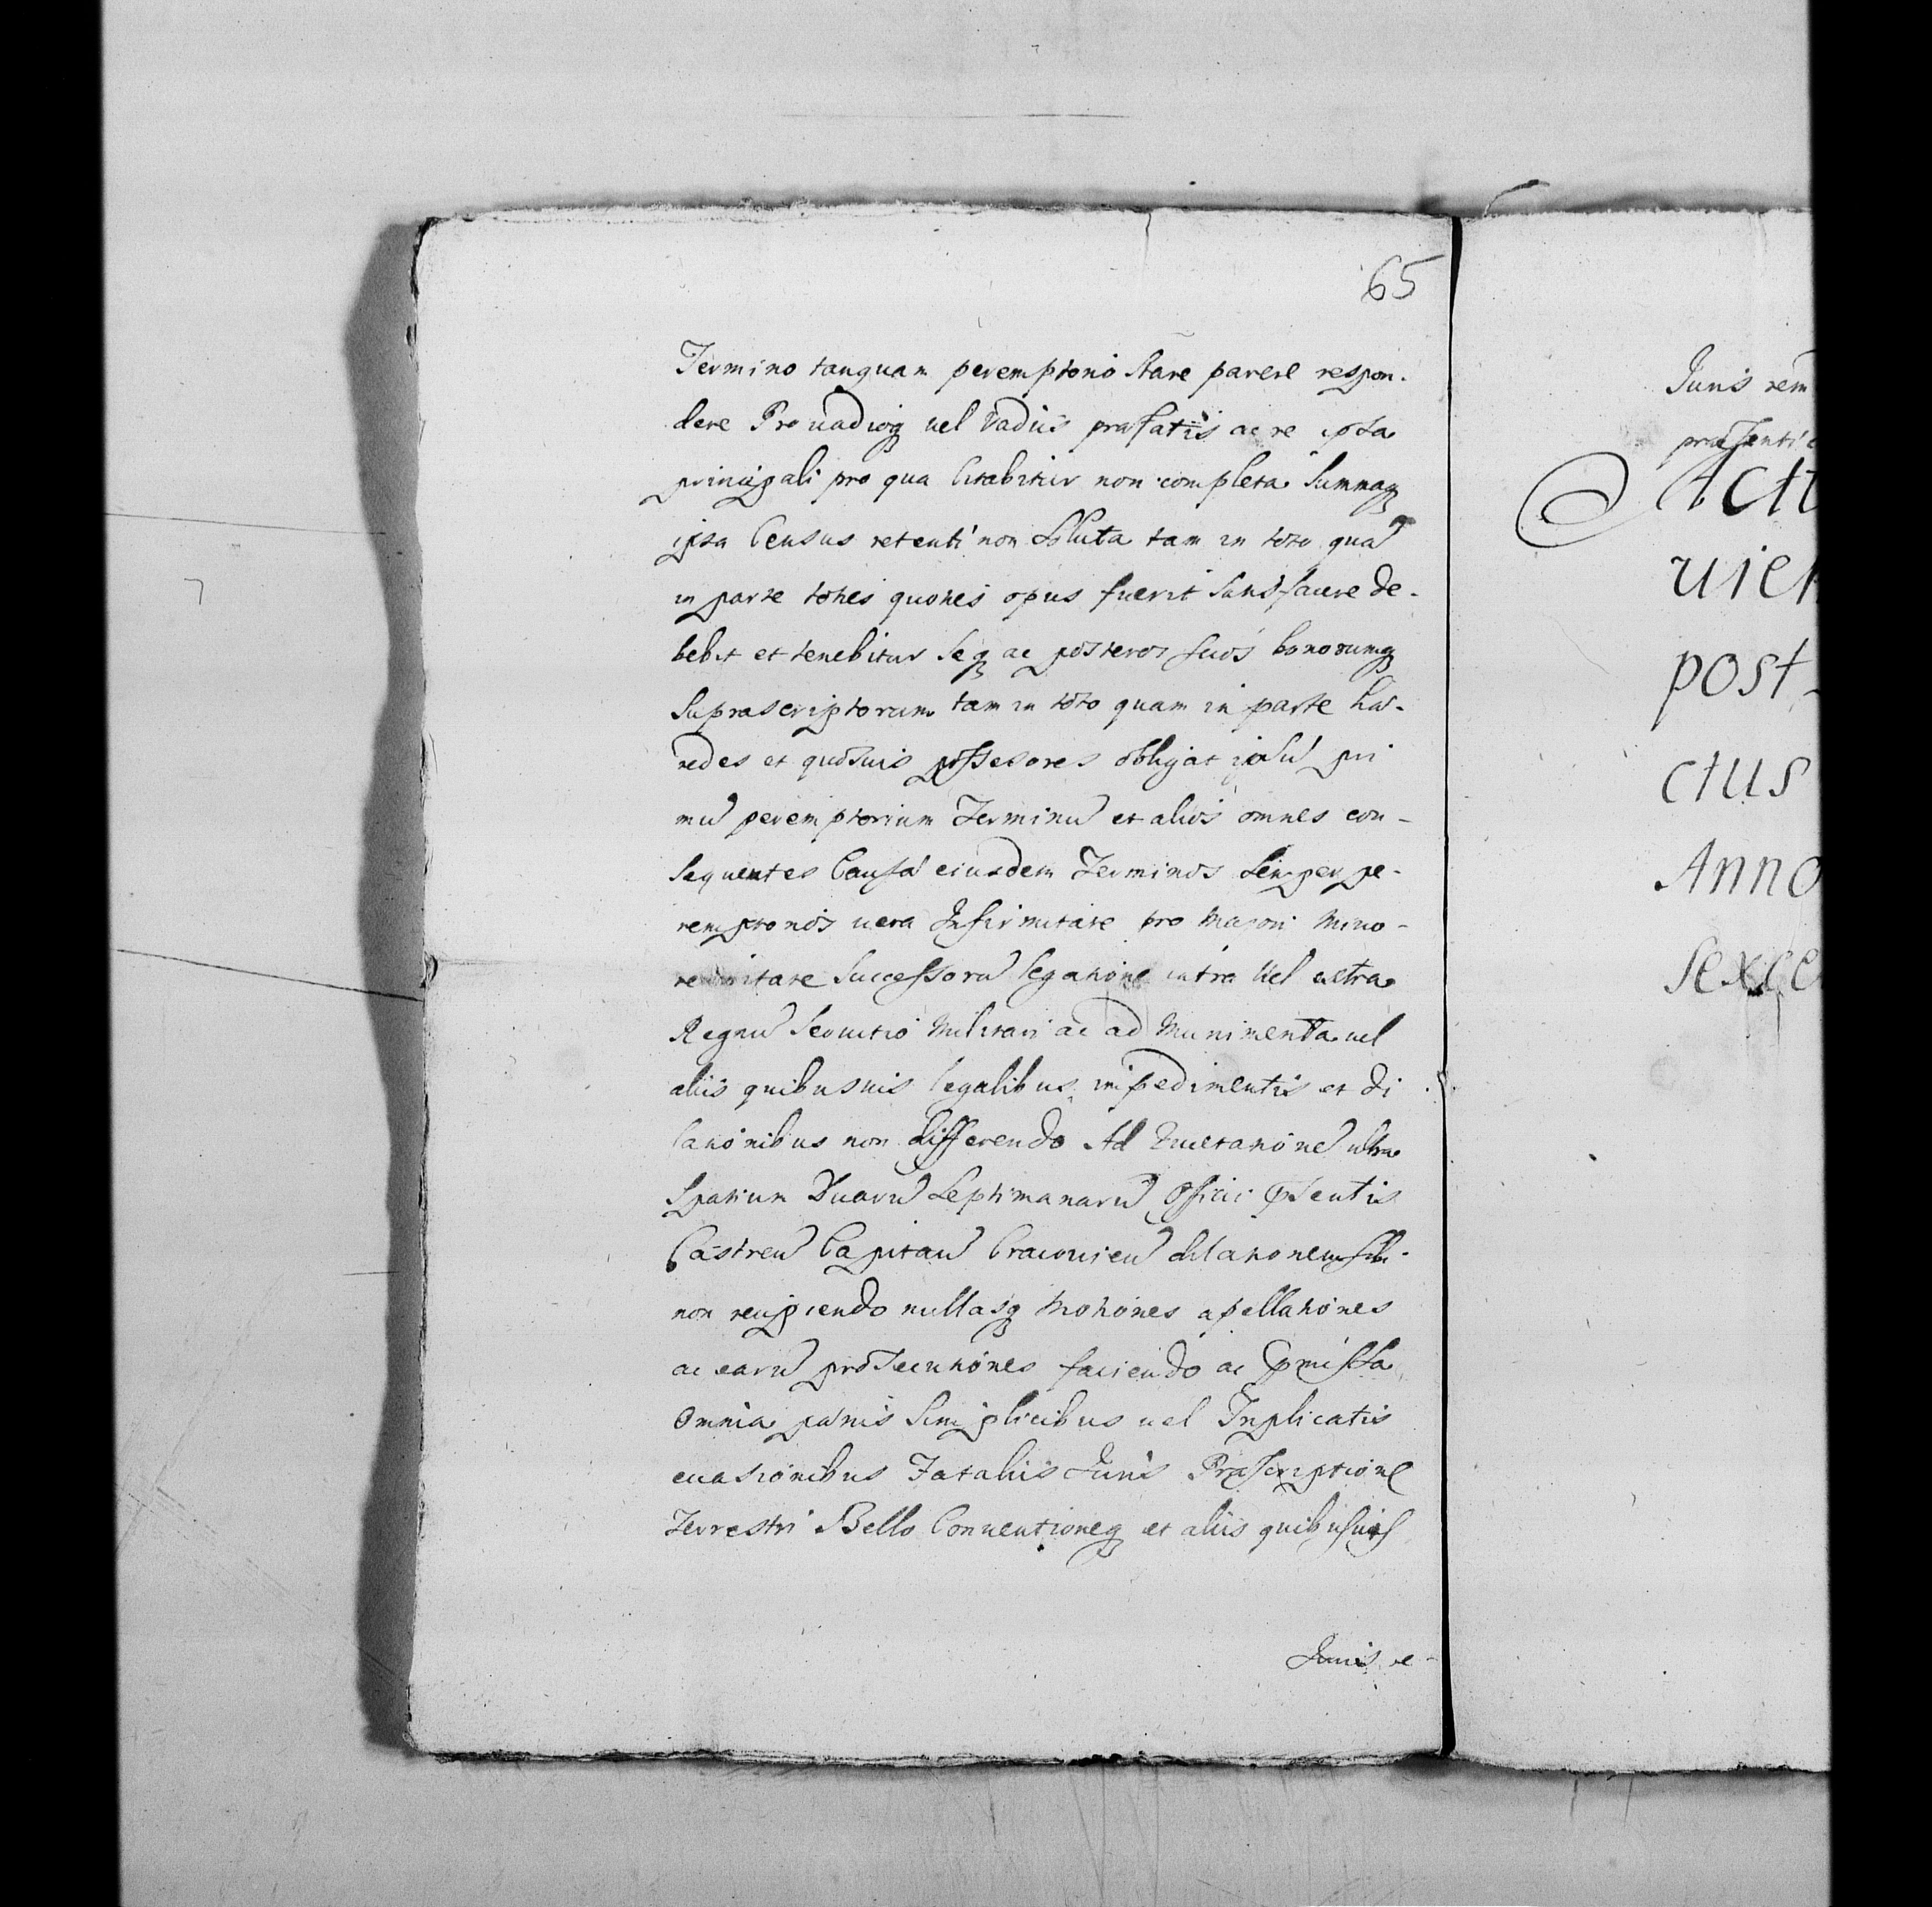 65
Termino tanquam peremptorio stare parere respon-
dere Pro uadioq vel Vadiis præfatis ac re ipsa
principali pro qua Citabitur non completa Summaq
ipsa Census retenti non Soluta tam in toto qua
in parte toties quoties opus fuerit satisfacere de-
bebit et tenebitur Seq ac posteros suos bonorumq
Suprascriptorum tam in toto quam in parte hæ-
redes et quosuis possessores obligat ipsu pri
mu peremptorium Terminu et alios omnes con-
sequentes Causæ eiusdem Terminos Semper pe-
remptorios uera Infirmitate pro Maiori Mino-
rennitate Successoru legatione intra Vel extra
Regnu Seruitio Militari ac ad Munimenta uel
aliis quibusuis legalibus impedimentis et di
lationibus non differendo Ad Quietatione ultra
Spatium Duaru Septimanaru Officii psentis
Castren Capitan Cracouien dilationem sibi
non recipiendo nullasq Motiones apellationes
ac earu prosecutiones faciendo ac pmissa
Omnia pænis Simplicibus uel Triplicatis
euasionibus Fataliis Juris Præscriptione
Terrestri Bello Conuentioneq et aliis quibusuis
Juris re-
Juris rem
præsenti
Act
uien
post
ctus
Anno
sexce